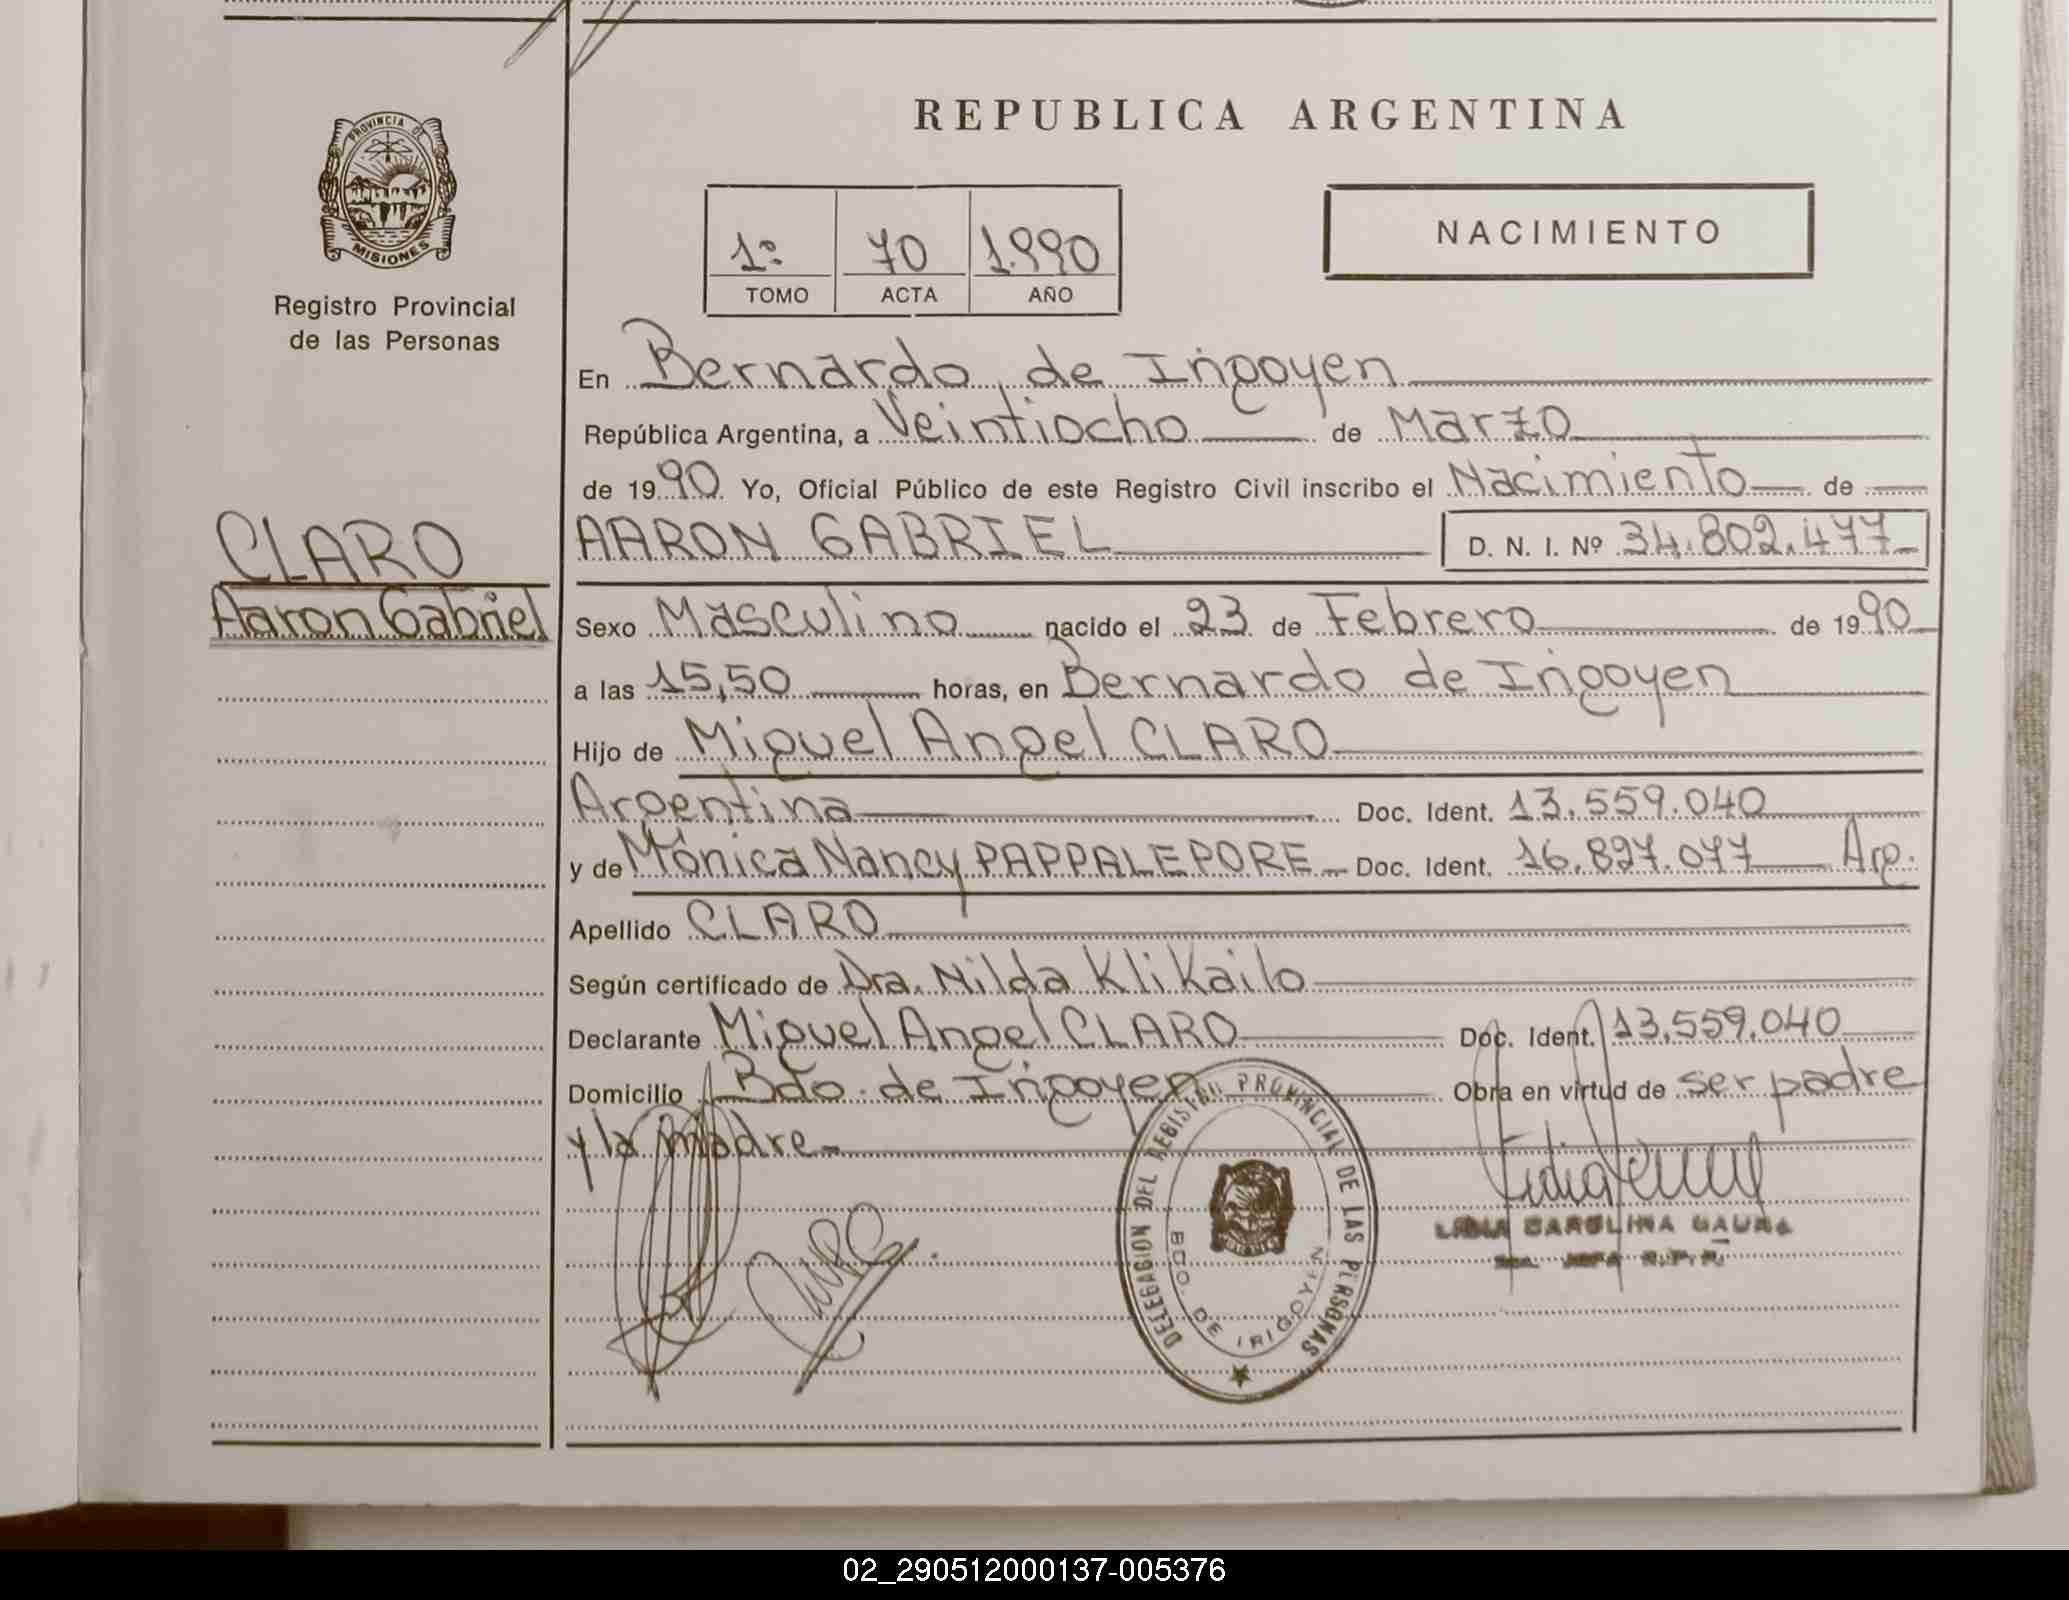 REPUBLICA ARGENTINA
PROVINCIA DE
MISIONES
Registro Provincial
de las Personas
1º 70 1.990
TOMO ACTA AÑO
NACIMIENTO
En Bernardo de Irigoyen
República Argentina, a Veintiocho de Marzo
de 1990 Yo, Oficial Público de este Registro Civil inscribo el Nacimiento de
CLARO
Aaron Gabriel
AARON GABRIEL D. N. I. Nº 34.802.477
Sexo Masculino nacido el 23 de Febrero de 1990
a las 15,50 horas, en Bernardo de Irigoyen
Hijo de Miguel Angel CLARO
Argentina Doc. Ident. 13.559.040
y de Mónica Nancy PAPPALEPORE Doc. Ident. 16.827.077 Arg.
Apellido CLARO
Según certificado de Dra. Nilda Klikailo
Declarante Miguel Angel CLARO Doc. Ident. 13.559.040
Domicilio Bdo. de Irigoyen Obra en virtud de ser padre
y la madre
DELEGACION DEL REGISTRO PROVINCIAL DE LAS PERSONAS
BDO. DE IRIGOYEN
CAROLINA
02_290512000137-005376